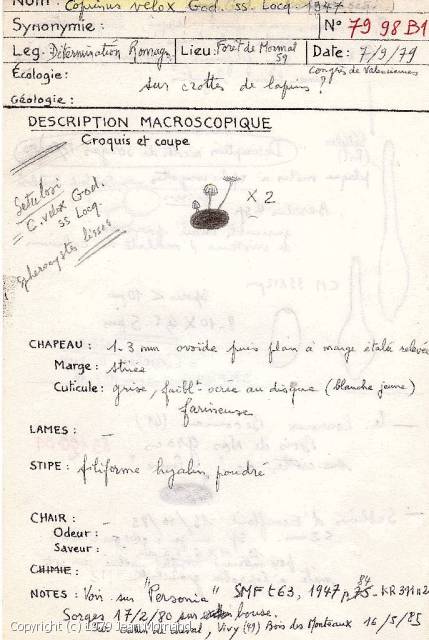 Nom : Coprinus velox God. ss. Locq. 1947
Synonymie :
N° 79 98 B1
Leg. Détermination Romagn. Lieu : Forêt de Mormal 59 Date : 7/9/79
Congrès de Valenciennes
Écologie : sur crottes de lapins ?
Géologie :
DESCRIPTION MACROSCOPIQUE
Croquis et coupe
Setulosi
= C. velox God.
ss Locq.
Spherocystes lisses
X 2
CHAPEAU : 1-3 mm ovoïde puis plan à marge étalée relevée
Marge : striée
Cuticule : grise, faiblt ocrée au disque (blanche jeune)
farineuse
LAMES :
STIPE : filiforme hyalin poudré
CHAIR : -
Odeur : -
Saveur : -
CHIMIE :
NOTES : Voir sur "Personia" SMF t 63, 1947 p 84
Sorges 17/2/80 sur bouse.
Vivy (49) Bois des Monteaux 16/5/85
Copyright (c) 1979